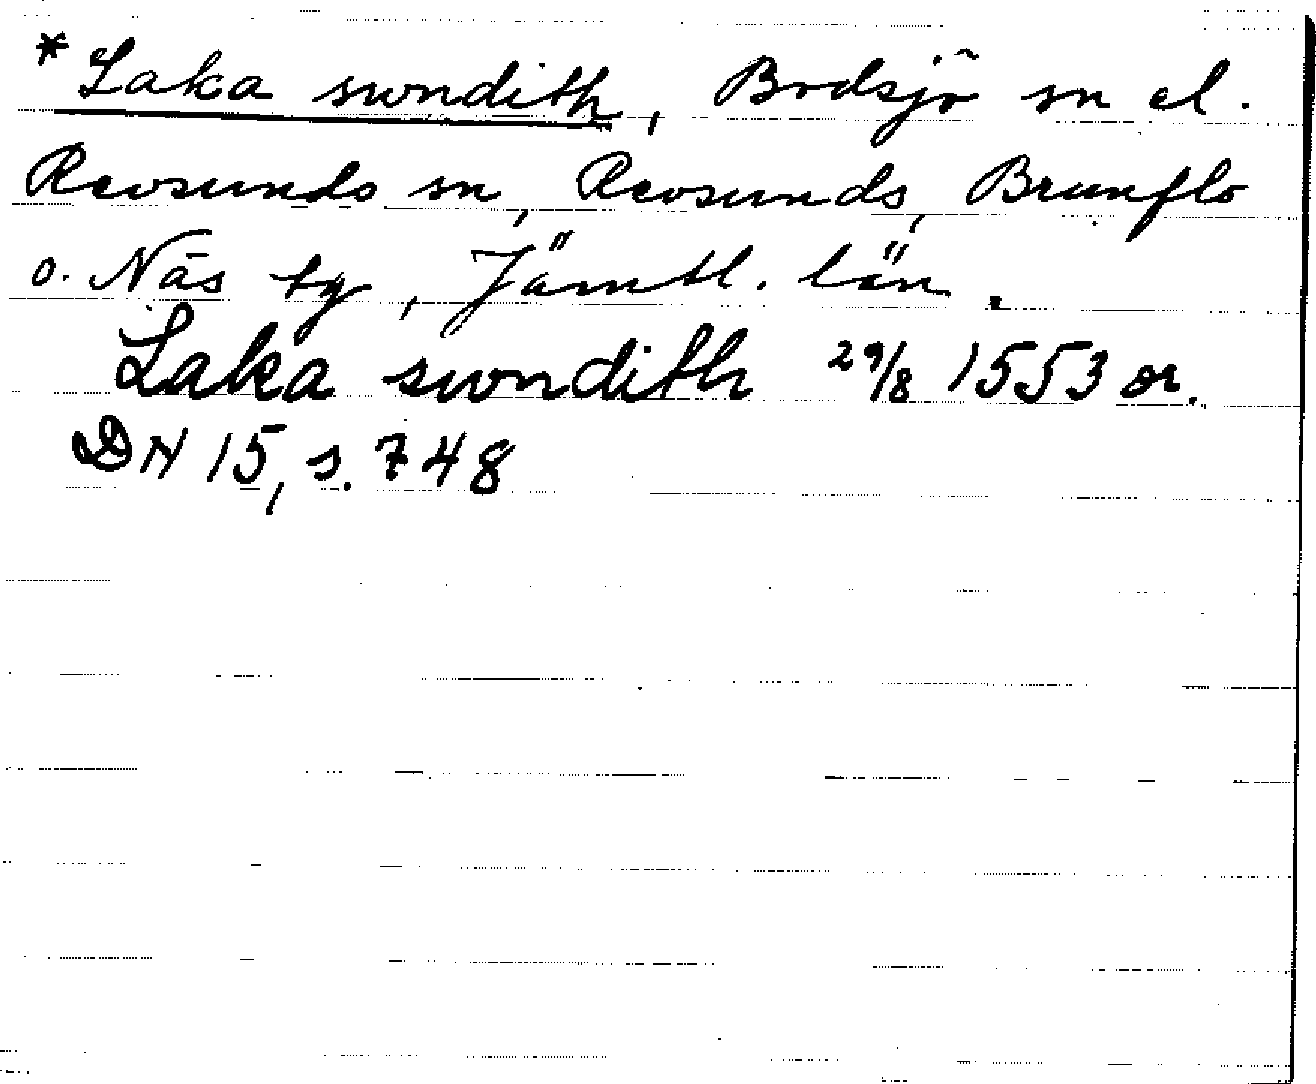 * Laka swndith, Bodsjö sn el.
Revsunds sn, Revsunds, Brunflo
o. Näs tg, Jämtl. län.
Laka swndith 29/8 1553 or.
DN 15, s. 748